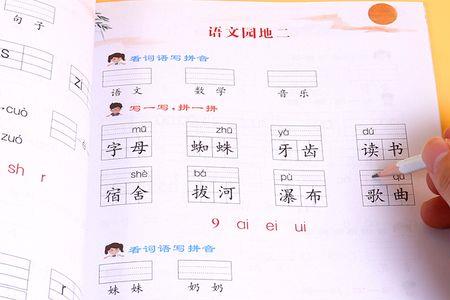 句子
s
zi
cuò
zuó
sh r
语文园地二
看词语写拼音
语文 数学 音乐
写一写,拼一拼
mǔ zhū yá dú
字母 蜘蛛 牙齿 读书
shè bá pù qǔ
宿舍 拔河 瀑布 歌曲
9 ai ei ui
看词语写拼音
妹妹 奶奶